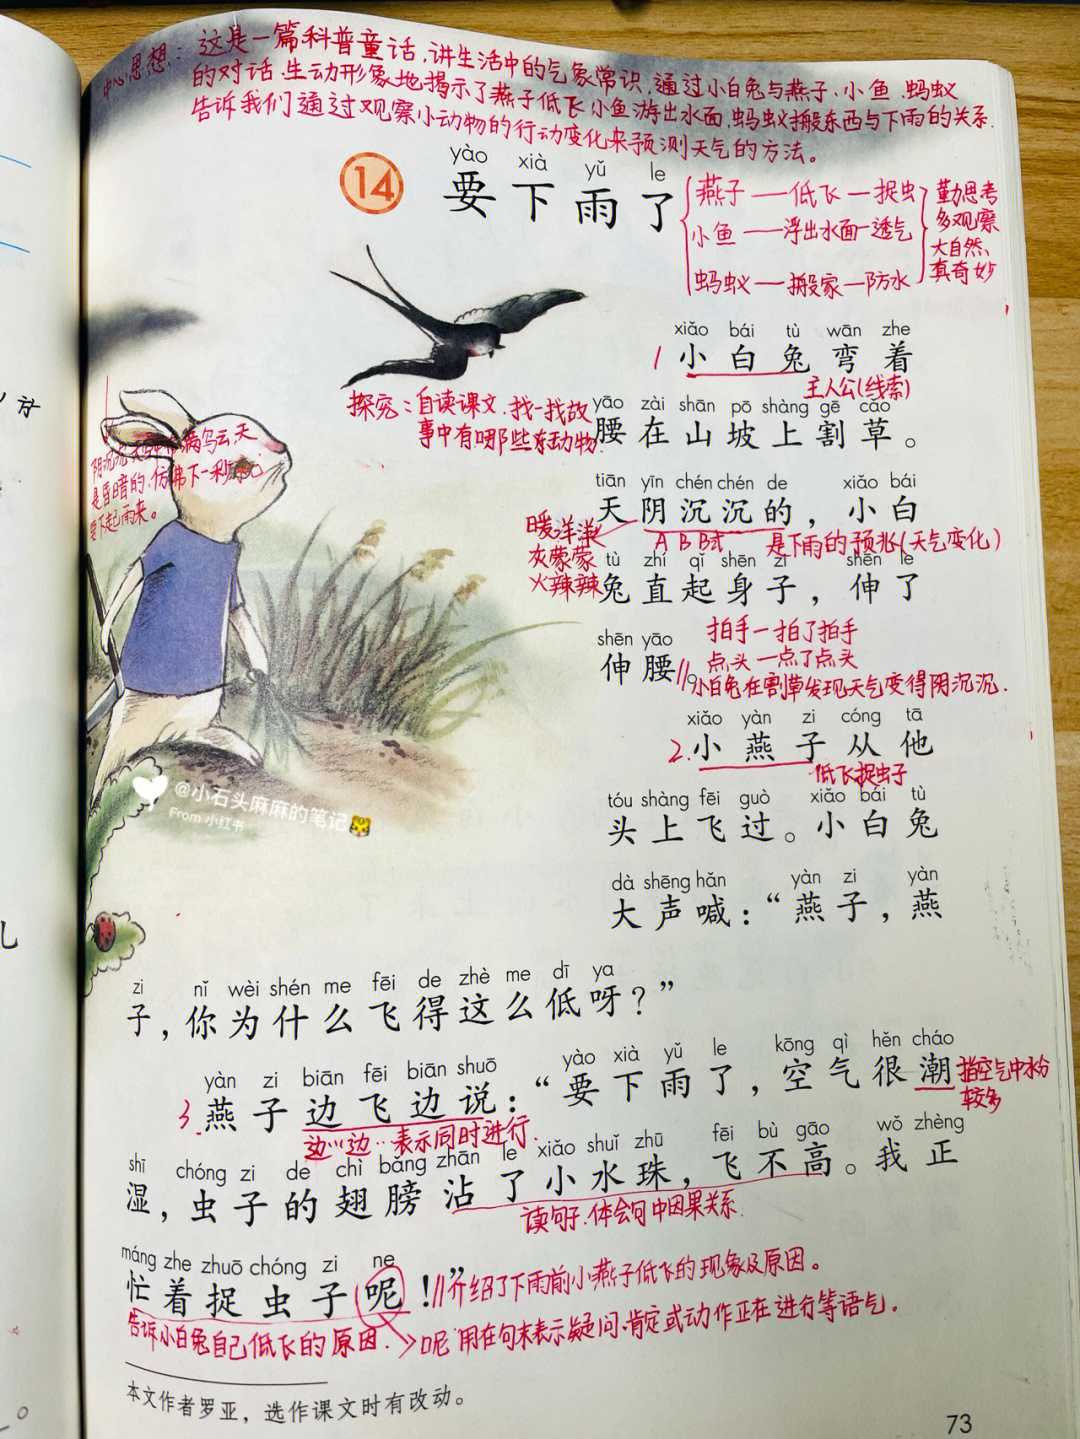 中心思想：这是一篇科普童话,讲生活中的气象常识,通过小白兔与燕子、小鱼、蚂蚁
的对话,生动形象地揭示了燕子低飞小鱼游出水面,蚂蚁搬东西与下雨的关系.
告诉我们通过观察小动物的行动变化来预测天气的方法。
yào xià yǔ le
14 要下雨了
燕子——低飞—捉虫
小鱼——浮出水面—透气
蚂蚁——搬家—防水
勤思考
多观察
大自然、
真奇妙
xiǎo bái tù wān zhe
1 小白兔弯着
主人公(线索)
探究：自读课文,找一找故
事中有哪些小动物.
yāo zài shān pō shàng gē cǎo
腰在山坡上割草。
阴沉沉
满乌云,天
是昏暗的,仿佛下一秒
要下起雨来。
tiān yīn chén chén de xiǎo bái
天阴沉沉的，小白
ABB式
是下雨的预兆(天气变化)
暖洋洋
灰蒙蒙
火辣辣
tù zhí qǐ shēn zi shēn le
兔直起身子，伸了
拍手—拍了拍手
点头—点了点头
shēn yāo
伸腰。
//小白兔在割草发现天气变得阴沉沉.
xiǎo yàn zi cóng tā
2.小燕子从他
低飞捉虫子
tóu shàng fēi guò xiǎo bái tù
头上飞过。小白兔
dà shēng hǎn yàn zi yàn
大声喊：“燕子，燕
zi nǐ wèi shén me fēi de zhè me dī ya
子，你为什么飞得这么低呀？”
yàn zi biān fēi biān shuō yào xià yǔ le kōng qì hěn cháo
3.燕子边飞边说：“要下雨了，空气很潮
指空气中水份
较多
边…边…表示同时进行.
shī chóng zi de chì bǎng zhān le xiǎo shuǐ zhū fēi bù gāo wǒ zhèng
湿，虫子的翅膀沾了小水珠，飞不高。我正
读句子,体会句中因果关系.
máng zhe zhuō chóng zi ne
忙着捉虫子呢！”
//介绍了下雨前小燕子低飞的现象及原因。
告诉小白兔自己低飞的原因.
呢 用在句末表示疑问、肯定或动作正在进行等语气。
本文作者罗亚，选作课文时有改动。
73
@小石头麻麻的笔记
From 小红书